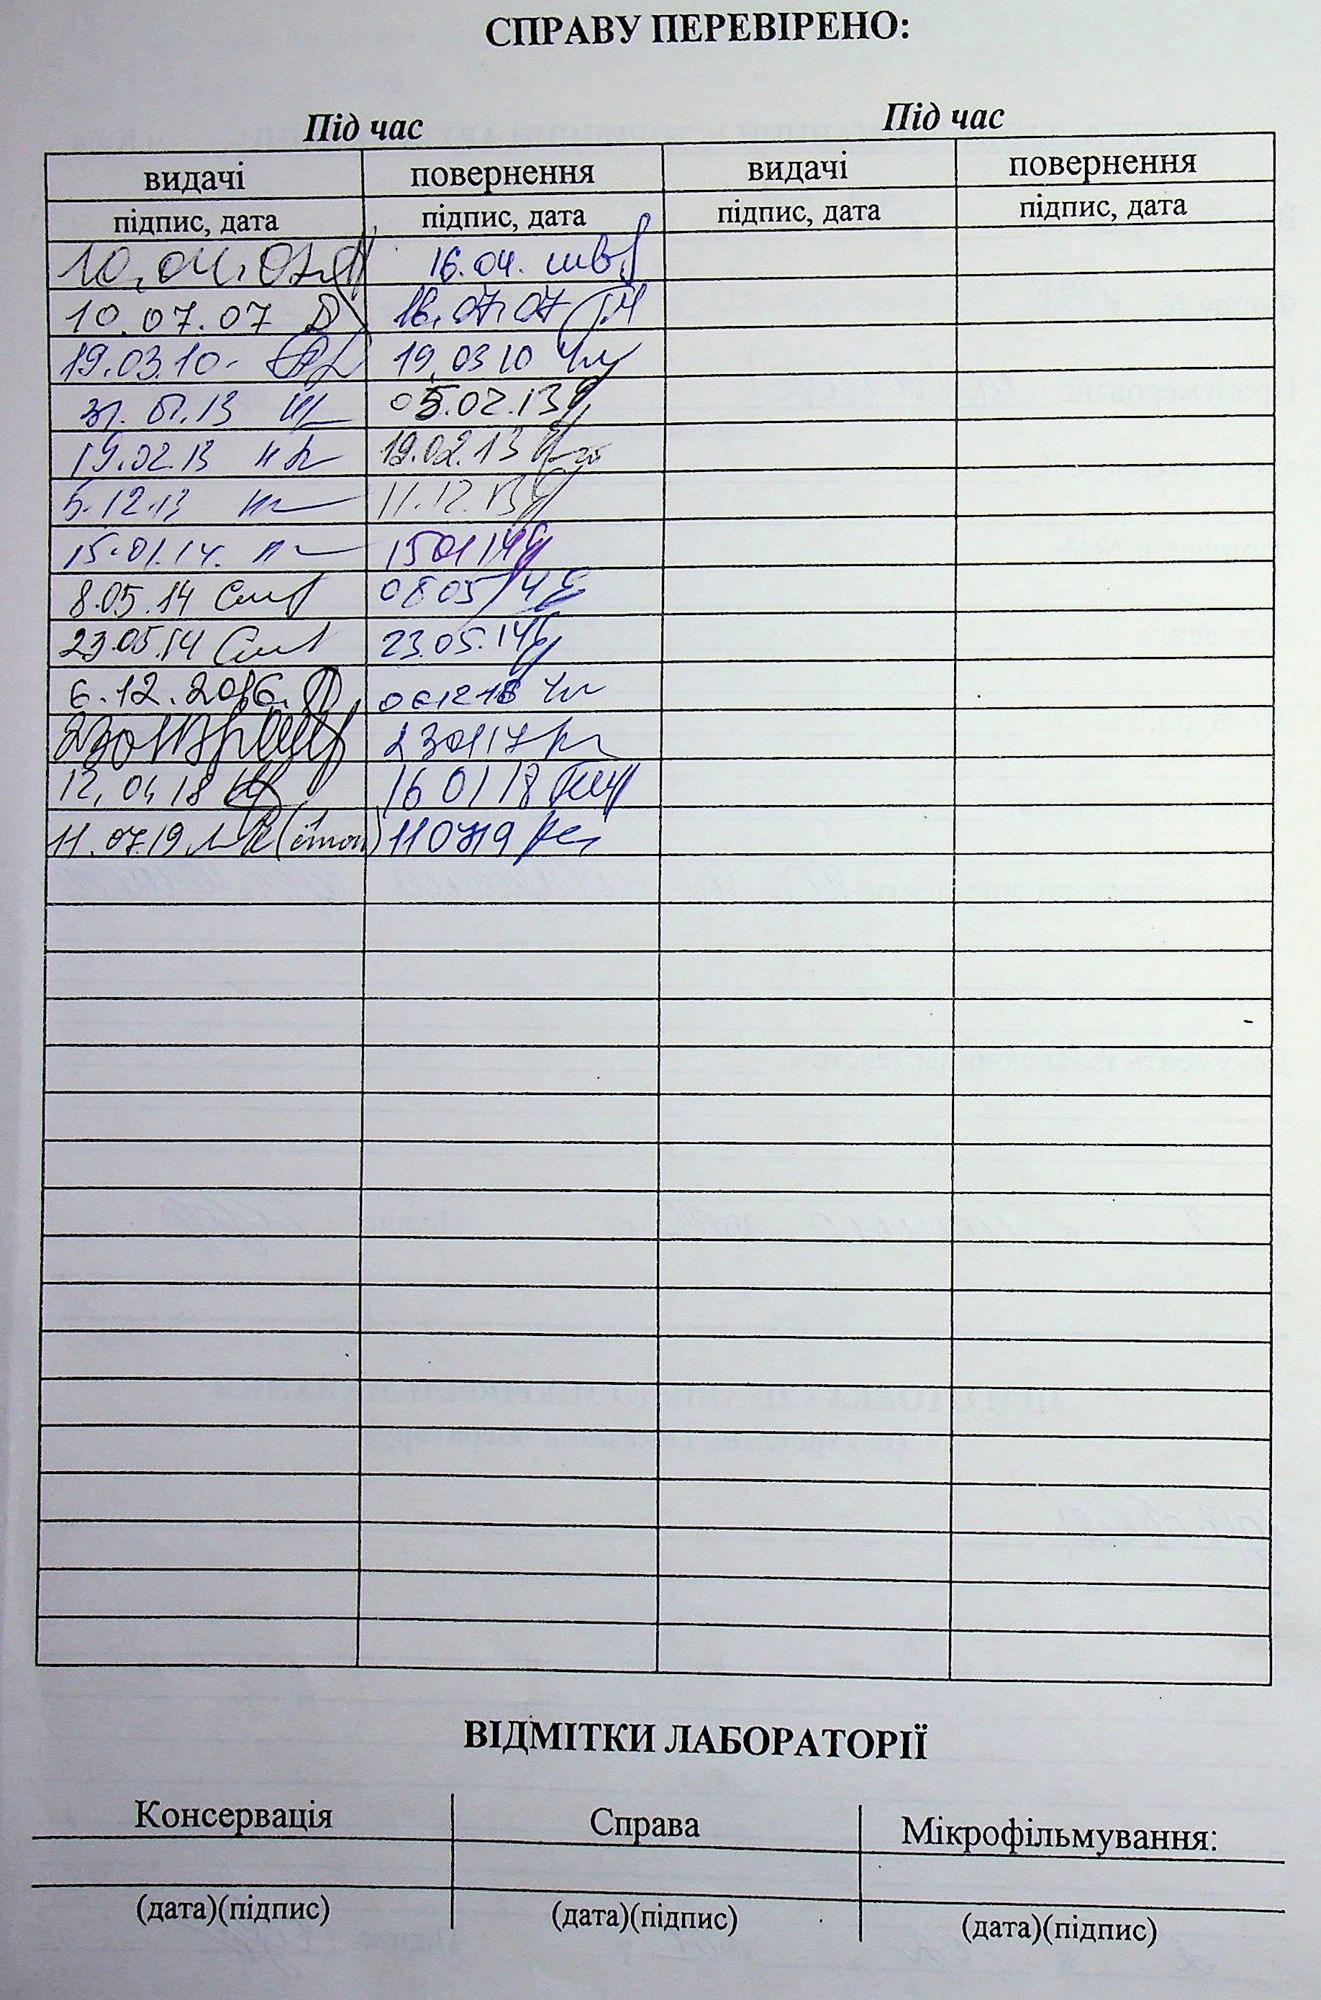 СПРАВУ ПЕРЕВІРЕНО:
Під час Під час
видачі повернення видачі повернення
підпис, дата підпис, дата підпис, дата підпис, дата
10.04.07 16.04.
10.07.07 16.07.07
19.03.10 19.03 10
31.01.13 05.02.13
19.02.13 19.02.13
5.12.13 11.12.13
15.01.14. 150114
8.05.14 080514
23.05.14 23.05.14
6.12.2016. 061216
230117 230117
12.01 18 16 01 18
11.07.19 110719
ВІДМІТКИ ЛАБОРАТОРІЇ
Консервація Справа Мікрофільмування:
(дата)(підпис) (дата)(підпис) (дата)(підпис)